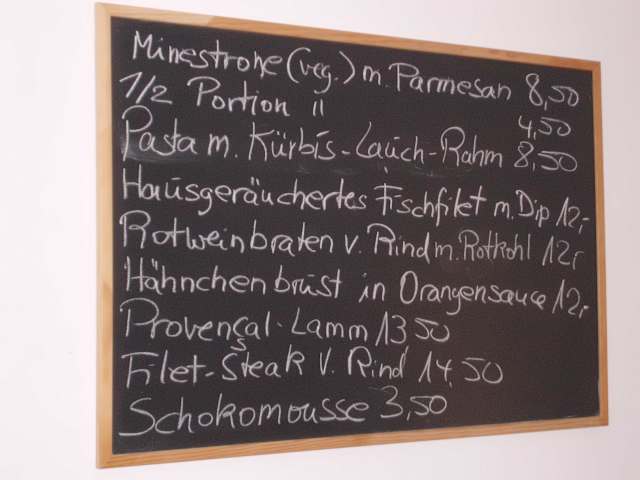 Minestrone (veg.) m. Parmesan 8,50
1/2 Portion " 4,50
Pasta m. Kürbis-Lauch-Rahm 8,50
Hausgeräuchertes Fischfilet m. Dip 12,-
Rotweinbraten v. Rind m. Rotkohl 12,-
Hähnchenbrust in Orangensauce 12,-
Provençal-Lamm 13 50
Filet-Steak v. Rind 14,50
Schokomousse 3,50